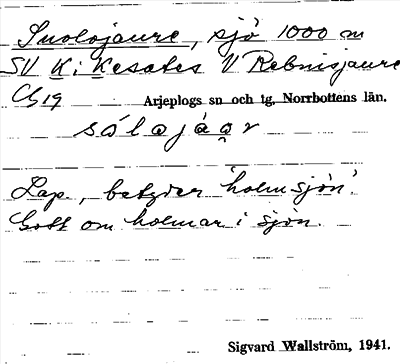 Suolojaure, sjö 1000 m
SV K i Kesates V Rebnisjaure
C 19 Arjeplogs sn och tg, Norrbottens län.
sólojáǫr
Lap., betyder 'holmsjön'.
Gott om holmar i sjön.
Sigvard Wallström, 1941.